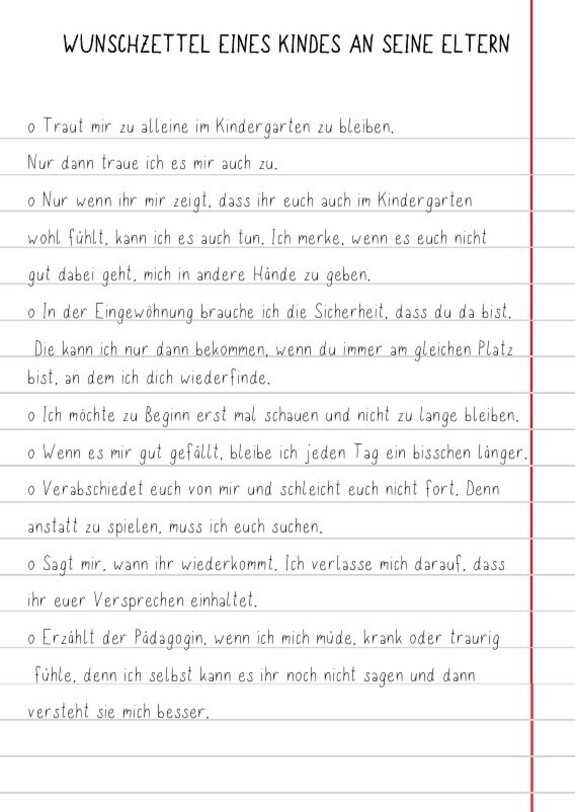 WUNSCHZETTEL EINES KINDES AN SEINE ELTERN
o Traut mir zu alleine im Kindergarten zu bleiben.
Nur dann traue ich es mir auch zu.
o Nur wenn ihr mir zeigt, dass ihr euch auch im Kindergarten
wohl fühlt, kann ich es auch tun. Ich merke, wenn es euch nicht
gut dabei geht, mich in andere Hände zu geben.
o In der Eingewöhnung brauche ich die Sicherheit, dass du da bist.
Die kann ich nur dann bekommen, wenn du immer am gleichen Platz
bist, an dem ich dich wiederfinde.
o Ich möchte zu Beginn erst mal schauen und nicht zu lange bleiben.
o Wenn es mir gut gefällt, bleibe ich jeden Tag ein bisschen länger.
o Verabschiedet euch von mir und schleicht euch nicht fort. Denn
anstatt zu spielen, muss ich euch suchen.
o Sagt mir, wann ihr wiederkommt. Ich verlasse mich darauf, dass
ihr euer Versprechen einhaltet.
o Erzählt der Pädagogin, wenn ich mich müde, krank oder traurig
fühle, denn ich selbst kann es ihr noch nicht sagen und dann
versteht sie mich besser.